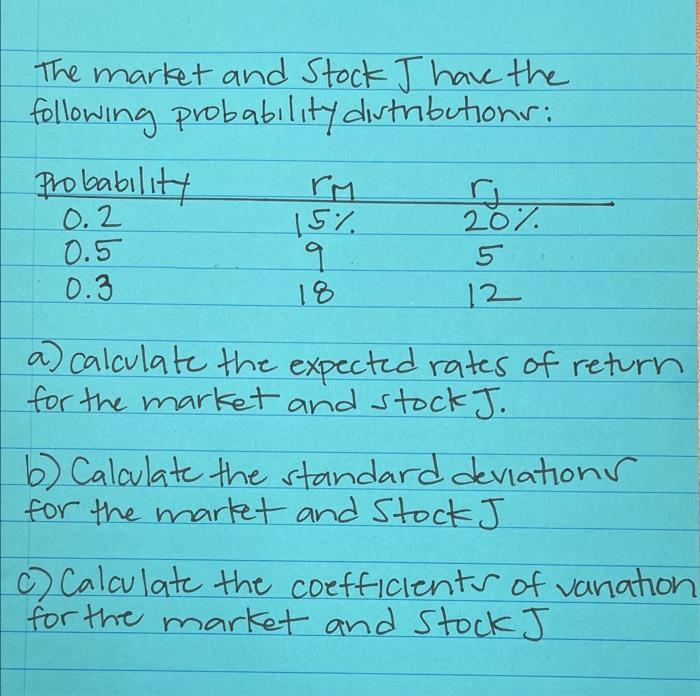 The market and Stock J have the
following probability distributions:
Probability rM rJ
0.2 15% 20%
0.5 9 5
0.3 18 12
a) calculate the expected rates of return
for the market and stock J.
b) Calculate the standard deviations
for the market and Stock J
c) Calculate the coefficients of variation
for the market and Stock J